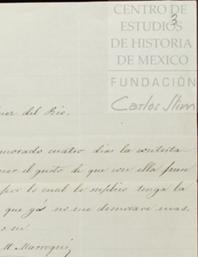 CENTRO DE
ESTUDIOS
DE HISTORIA
DE MEXICO
FUNDACIÓN
Carlos Slim
3
del Rio.
morado cuatro dias la contesta
el gusto de que con ella
por lo cual le suplico tenga la
que yá no me demorare mas.
M. Marroqui